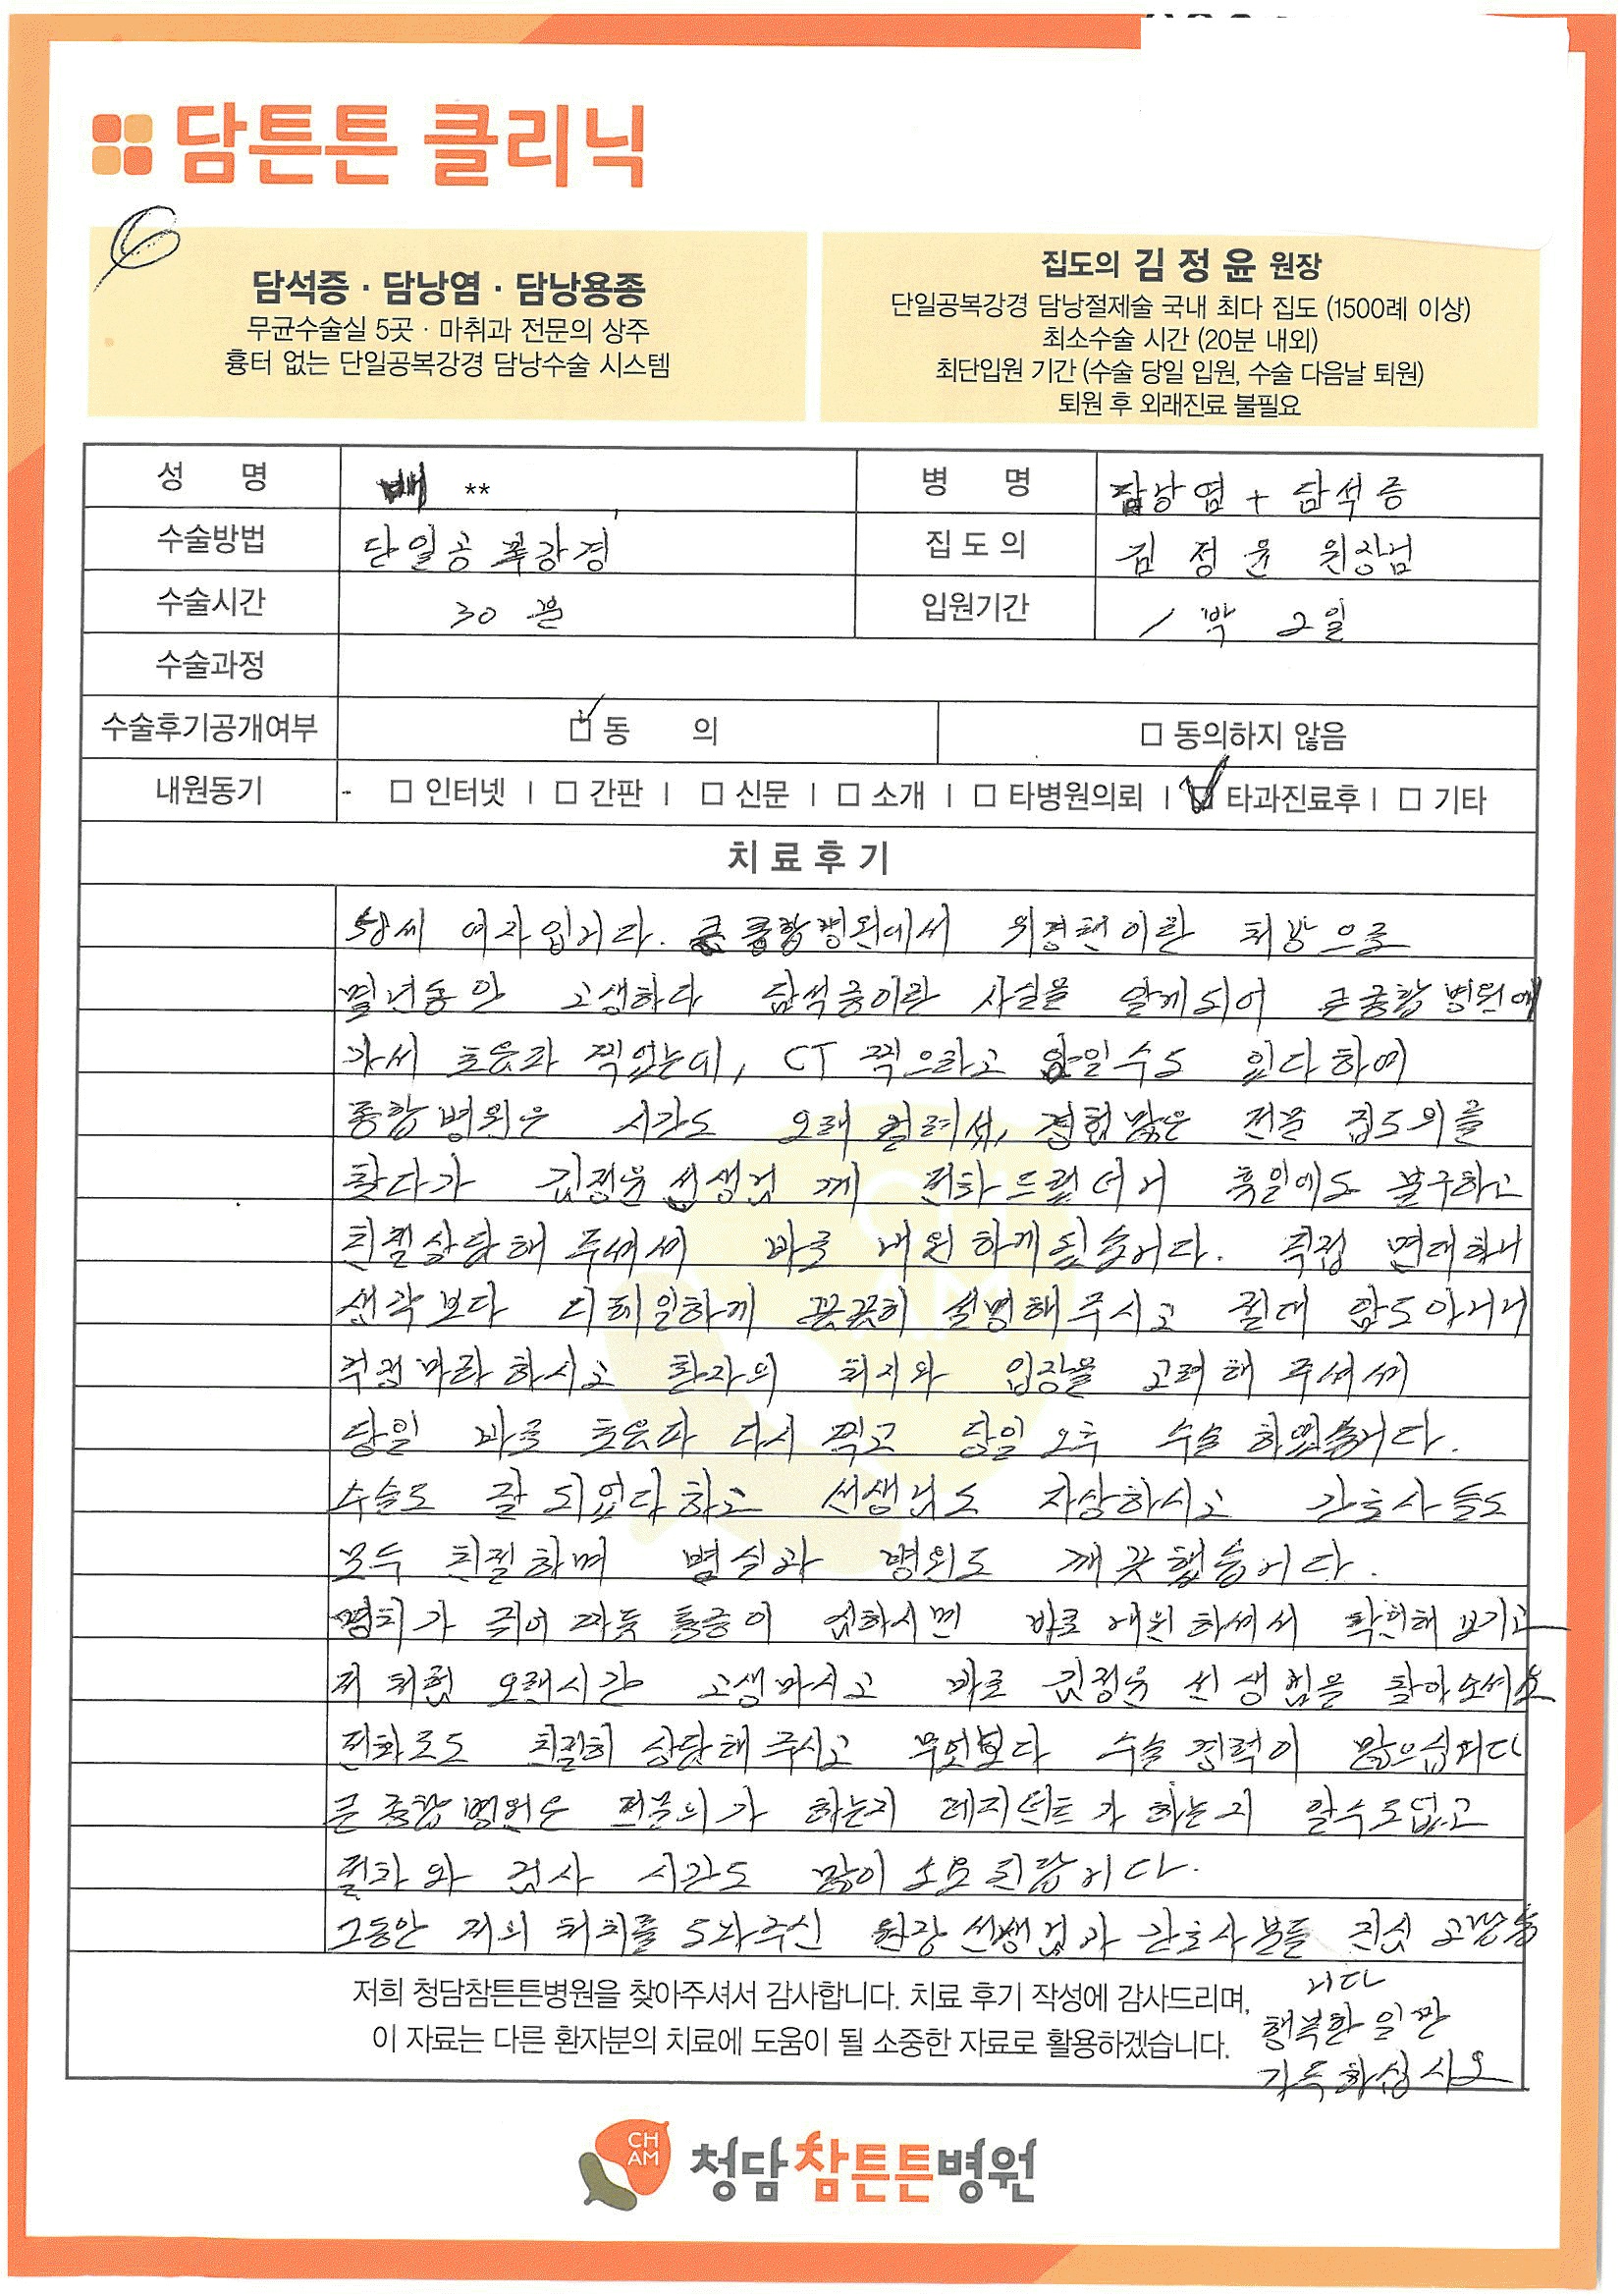 담튼튼 클리닉
담석증 · 담낭염 · 담낭용종
무균수술실 5곳 · 마취과 전문의 상주
흉터 없는 단일공복강경 담낭수술 시스템
집도의 김정윤 원장
단일공복강경 담낭절제술 국내 최다 집도 (1500례 이상)
최소수술 시간 (20분 내외)
최단입원 기간 (수술 당일 입원, 수술 다음날 퇴원)
퇴원 후 외래진료 불필요
성 명 배 ** 병 명 담낭염 + 담석증
수술방법 단일공 복강경 집도의 김정윤 원장님
수술시간 30분 입원기간 1박 2일
수술과정
수술후기공개여부 ☑ 동 의 □ 동의하지 않음
내원동기 - □ 인터넷 | □ 간판 | □ 신문 | □ 소개 | □ 타병원의뢰 | ☑ 타과진료후 | □ 기타
치료후기
58세 여자입니다. 큰 종합병원에서 위경련이란 처방으로
몇년동안 고생하다 담석증이란 사실을 알게되어 큰종합병원에
가서 초음파 찍었는데, CT 찍으라고 암일수도 있다하여
종합병원은 시간도 오래 걸려서, 경험많은 전문 집도의를
찾다가 김정윤 선생님께 전화드렸더니 휴일에도 불구하고
친절상담해 주셔서 바로 내원하게 됬습니다. 직접 면대하니
생각보다 디테일하게 꼼꼼히 설명해주시고 절대 암도아니니
걱정마라 하시고 환자의 처지와 입장을 고려해 주셔서
당일 바로 초음파 다시 찍고 당일 오후 수술 하였습니다.
수술도 잘 되었다하고 선생님도 자상하시고 간호사들도
모두 친절하며 병실과 병원도 깨끗했습니다.
명치가 쥐어 짜듯 통증이 심하시면 바로 내원하셔서 확인해 보시고
저처럼 오랜시간 고생마시고 바로 김정윤 선생님을 찾아오세요
전화로도 친절히 상담해 주시고 무엇보다 수술경력이 많으십니다
큰종합병원은 전문의가 하는지 레지던트가 하는지 알수도없고
절차와 검사 시간도 많이 소요된답니다.
그동안 저의 처치를 도와주신 원장선생님과 간호사분들 진심 고맙습
니다
행복한 일만
가득하십시오
저희 청담참튼튼병원을 찾아주셔서 감사합니다. 치료 후기 작성에 감사드리며,
이 자료는 다른 환자분의 치료에 도움이 될 소중한 자료로 활용하겠습니다.
CH
AM
청담참튼튼병원